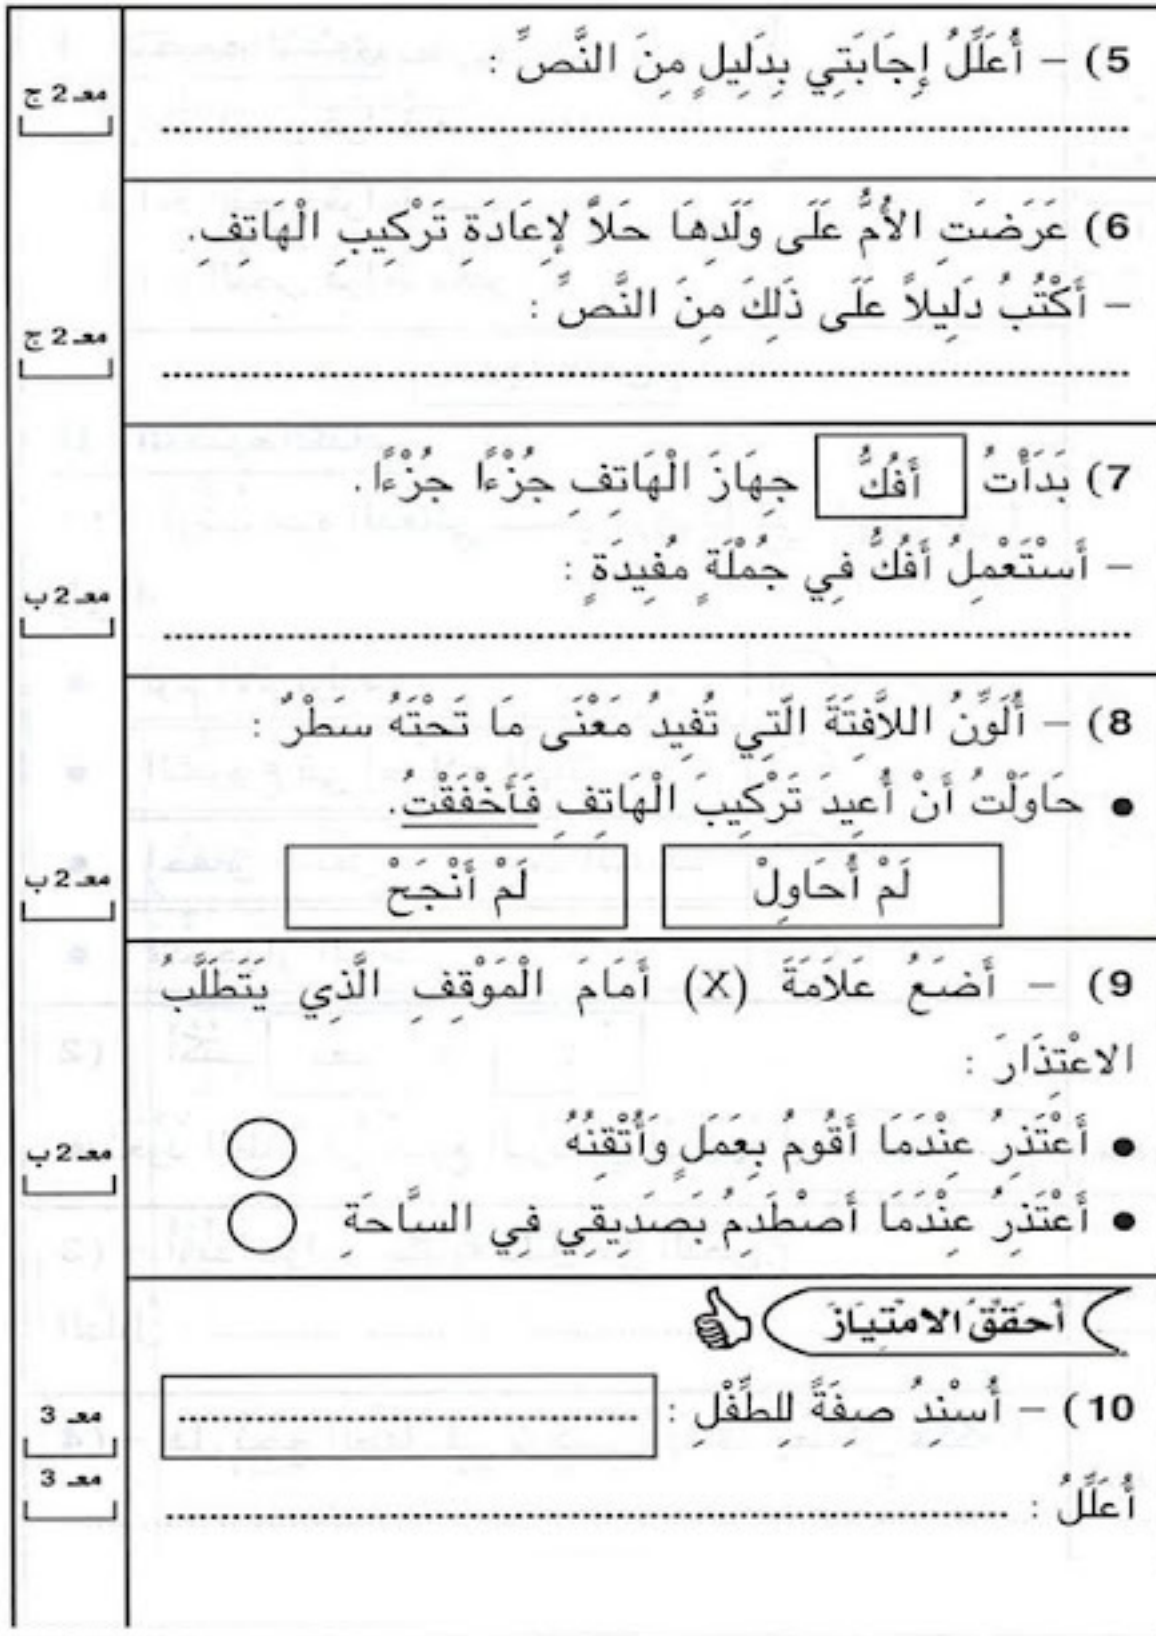 5) – أُعَلِّلُ إِجَابَتِي بِدَلِيلٍ مِنَ النَّصِّ :
معـ 2 ج
6) عَرَضَتِ الأُمُّ عَلَى وَلَدِهَا حَلاًّ لِإِعَادَةِ تَرْكِيبِ الْهَاتِفِ.
– أَكْتُبُ دَلِيلاً عَلَى ذَلِكَ مِنَ النَّصِّ :
معـ 2 ج
7) بَدَأْتُ أَفُكُّ جِهَازَ الْهَاتِفِ جُزْءًا جُزْءًا.
– أَسْتَعْمِلُ أَفُكُّ فِي جُمْلَةٍ مُفِيدَةٍ :
معـ 2 ب
8) – أُلَوِّنُ اللاَّفِتَةَ الَّتِي تُفِيدُ مَعْنَى مَا تَحْتَهُ سَطْرٌ :
• حَاوَلْتُ أَنْ أُعِيدَ تَرْكِيبَ الْهَاتِفِ فَأَخْفَقْتُ.
لَمْ أُحَاوِلْ لَمْ أَنْجَحْ
معـ 2 ب
9) – أَضَعُ عَلاَمَةَ (X) أَمَامَ الْمَوْقِفِ الَّذِي يَتَطَلَّبُ
الاعْتِذَارَ :
• أَعْتَذِرُ عِنْدَمَا أَقُومُ بِعَمَلٍ وَأُتْقِنُهُ
• أَعْتَذِرُ عِنْدَمَا أَصْطَدِمُ بِصَدِيقِي فِي السَّاحَةِ
معـ 2 ب
أُحَقِّقُ الامْتِيَازَ
10) – أُسْنِدُ صِفَةً لِلطِّفْلِ :
معـ 3
أُعَلِّلُ :
معـ 3